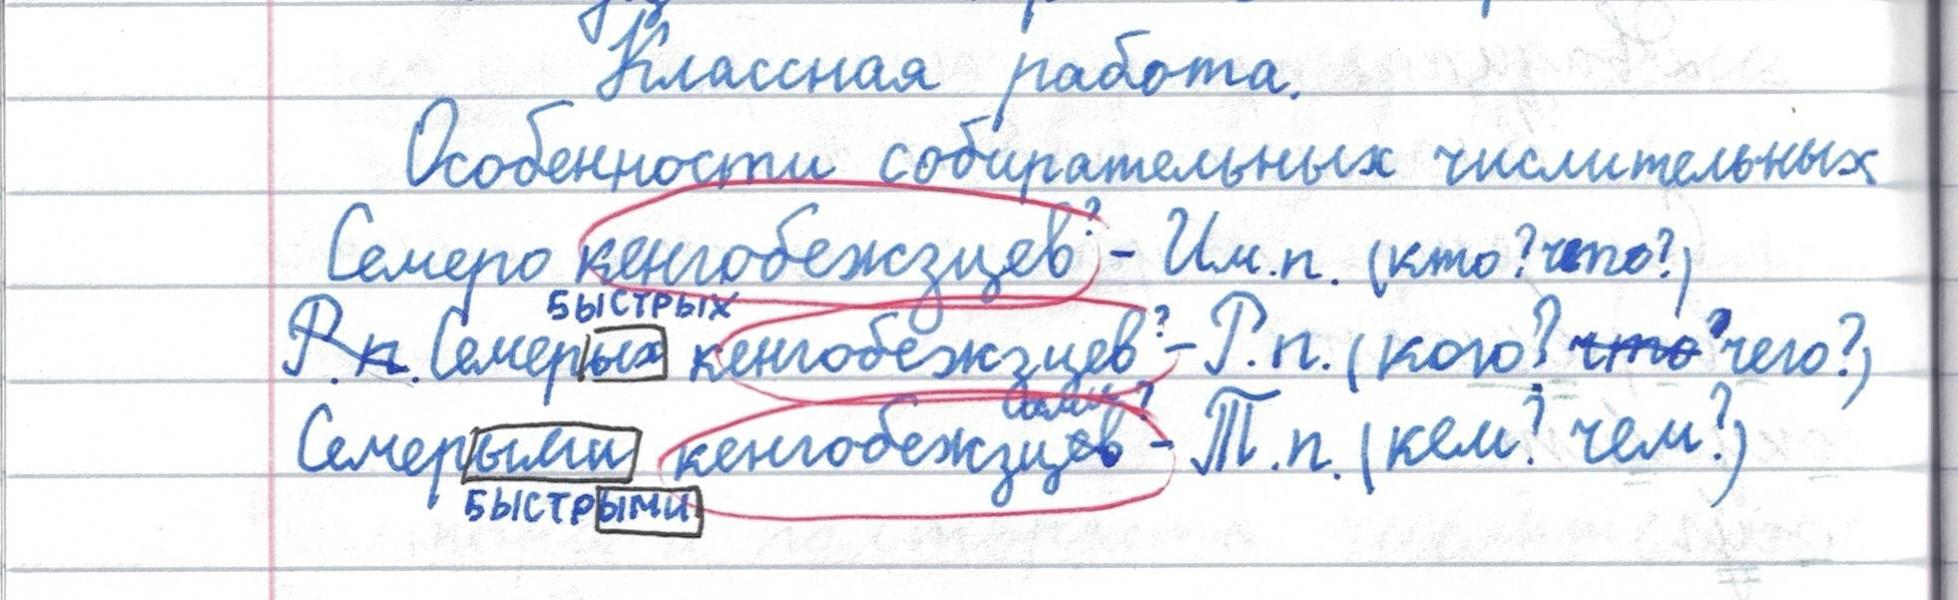 Классная работа.
Особенности собирательных числительных
Семеро кенгобежзцев? - Им.п. (кто? что?)
быстрых
Р.п. Семерых кенгобежзцев? - Р.п. (кого? что? чего?)
Семерыми кенгобежзцев? - Т.п. (кем? чем?)
быстрыми